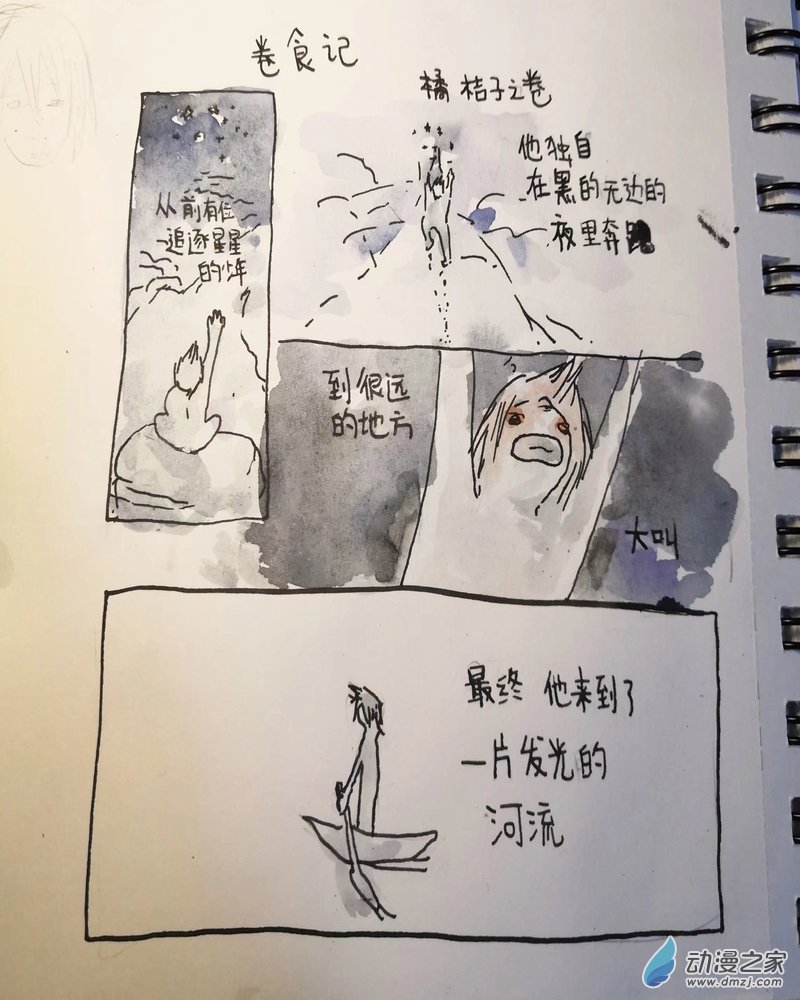 卷食记
橘桔子之卷
从前有位
追逐星星
的少年
他独自
在黑的无边的
夜里奔跑
到很远
的地方
大叫
最终 他来到了
一片发光的
河流
动漫之家
www.dmzj.com